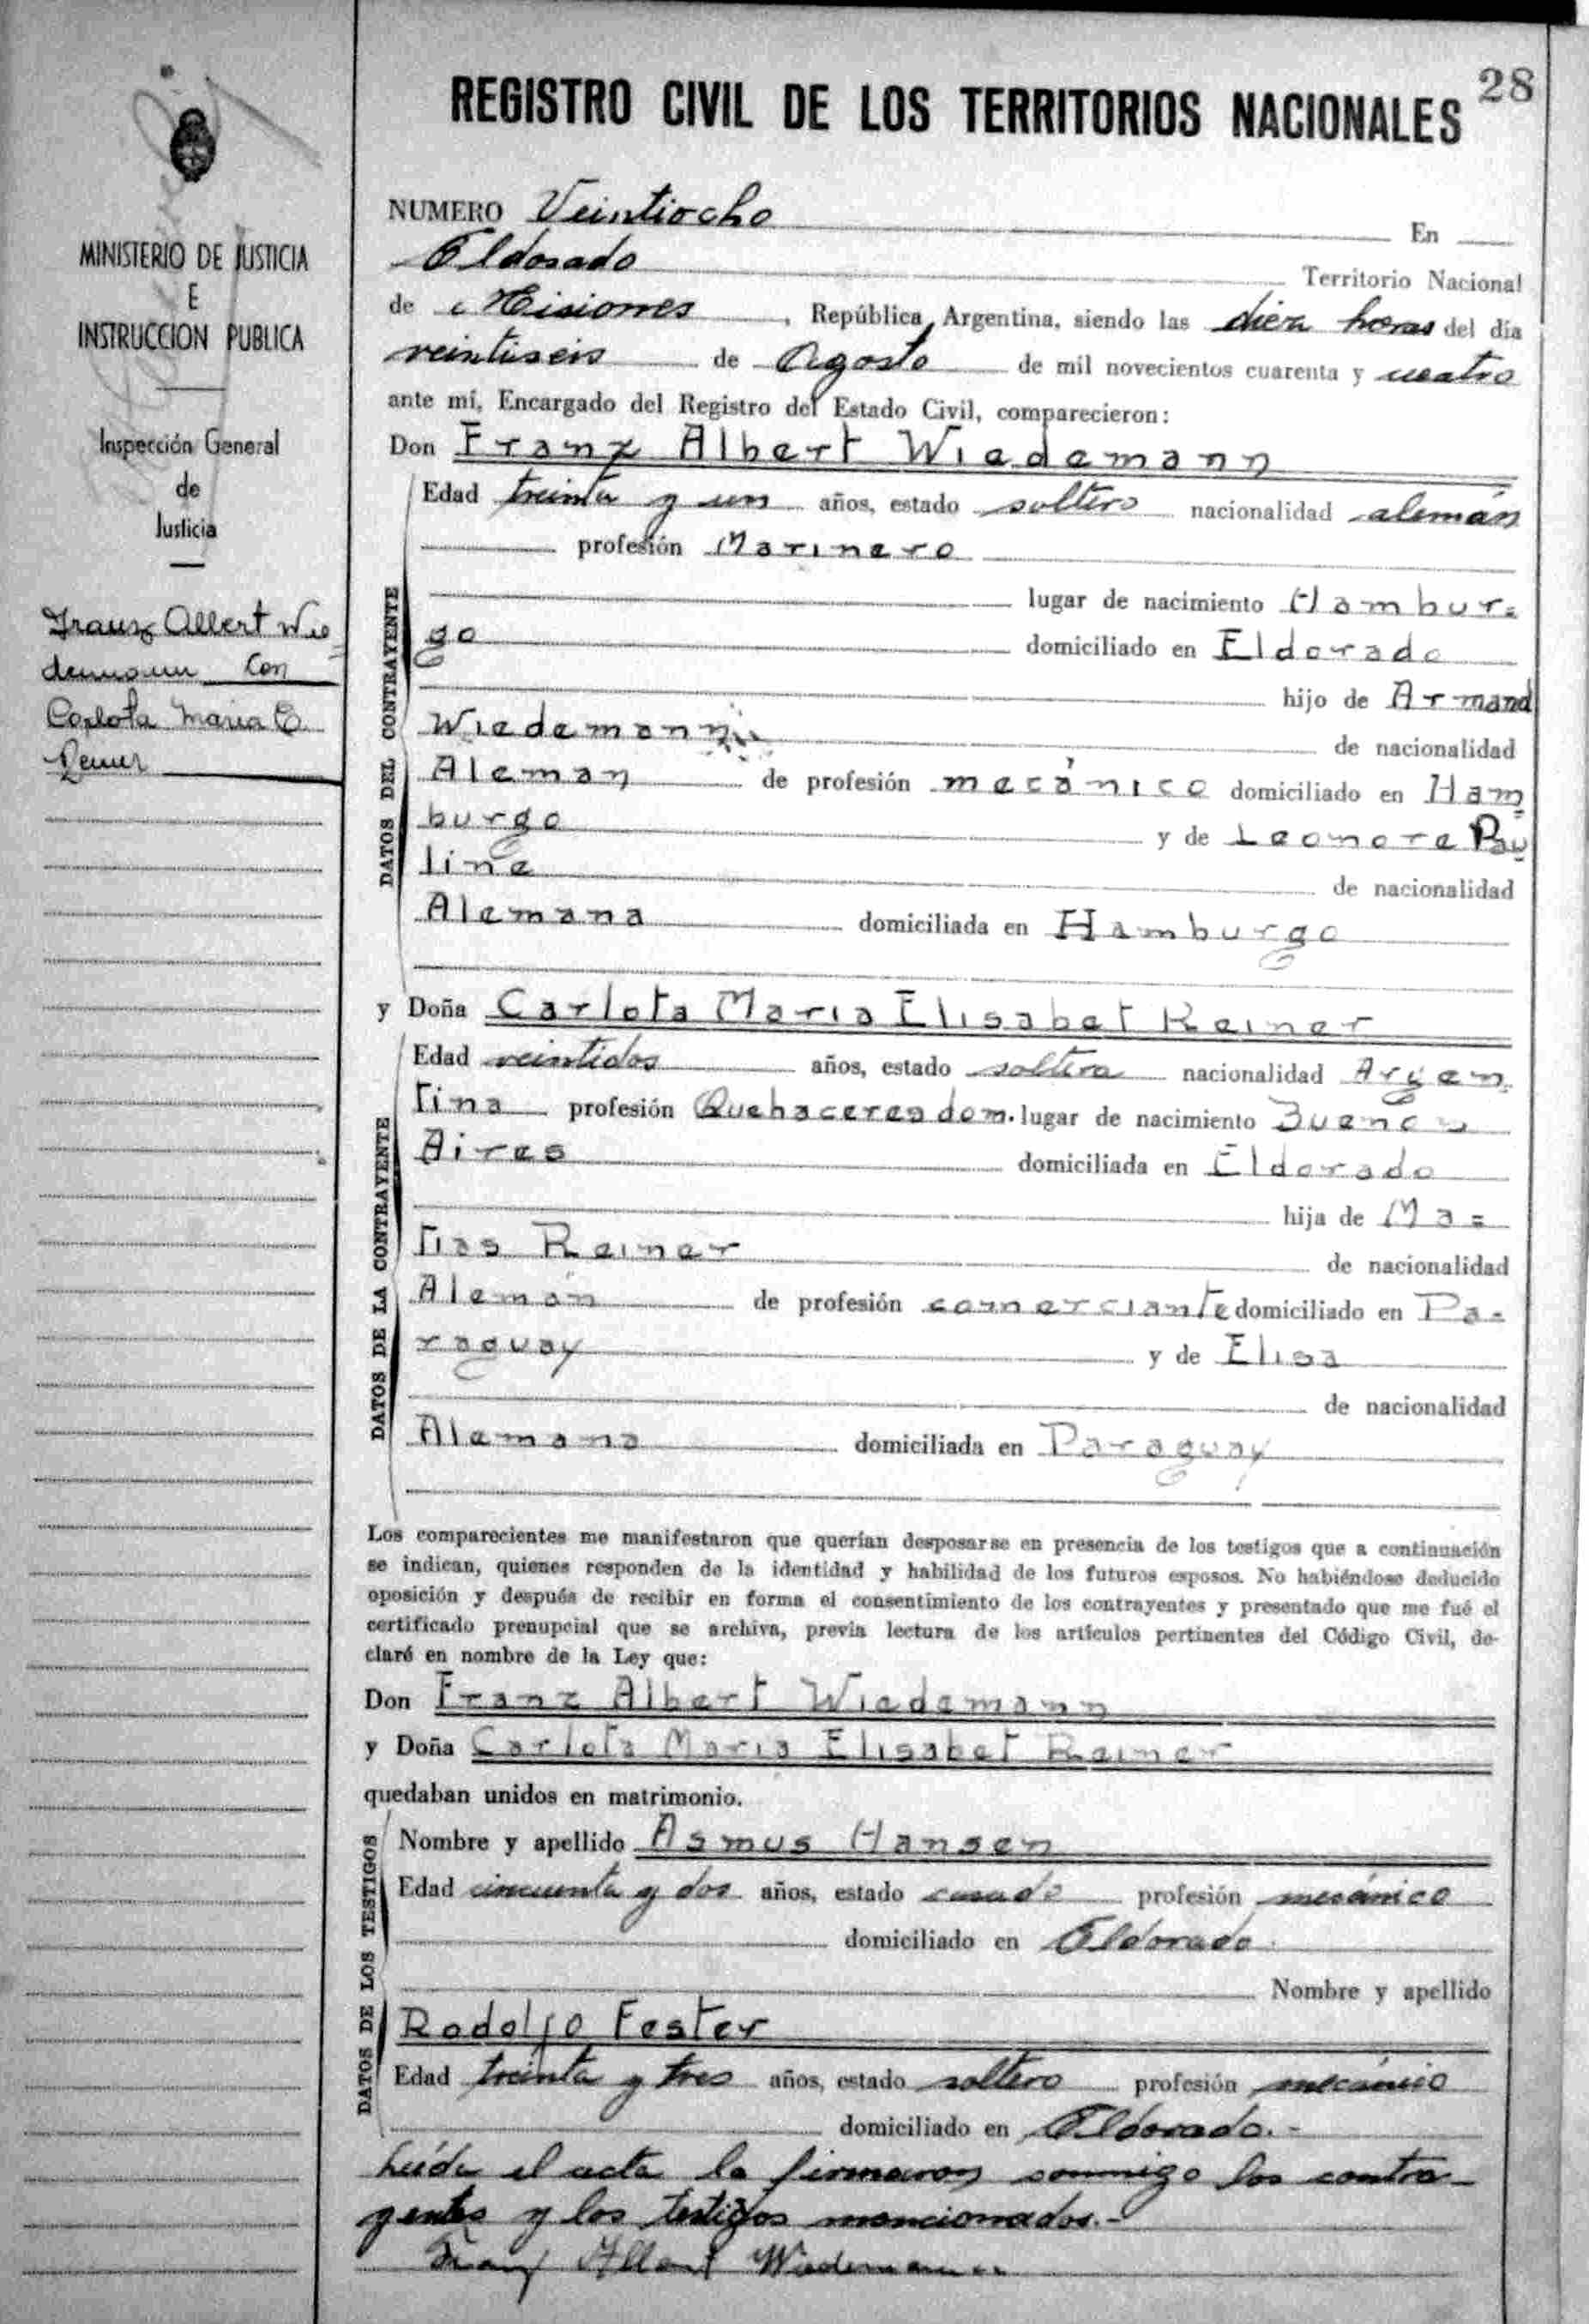 28
REGISTRO CIVIL DE LOS TERRITORIOS NACIONALES
MINISTERIO DE JUSTICIA
E
INSTRUCCION PUBLICA
Inspección General
de
Justicia
Franz Albert Wie-
demann con
Carlota Maria E.
Reiner
NUMERO Veintiocho En
Eldorado Territorio Nacional
de Misiones, República Argentina, siendo las diez horas del día
veintiseis de Agosto de mil novecientos cuarenta y cuatro
ante mí, Encargado del Registro del Estado Civil, comparecieron:
Don Franz Albert Wiedemann
DATOS DEL CONTRAYENTE
Edad treinta y un años, estado soltero nacionalidad alemán
profesión Marinero
lugar de nacimiento Hambur=
go domiciliado en Eldorado
hijo de Armand
Wiedemann de nacionalidad
Aleman de profesión mecánico domiciliado en Ham
burgo y de Leonore Pau
line de nacionalidad
Alemana domiciliada en Hamburgo
y Doña Carlota Maria Elisabet Reiner
DATOS DE LA CONTRAYENTE
Edad veintidos años, estado soltera nacionalidad Argen
tina profesión Quehaceres dom. lugar de nacimiento Buenos
Aires domiciliada en Eldorado
hija de Ma=
tias Reiner de nacionalidad
Alemán de profesión comerciante domiciliado en Pa-
raguay y de Elisa
de nacionalidad
Alemana domiciliada en Paraguay
Los comparecientes me manifestaron que querían desposarse en presencia de los testigos que a continuación
se indican, quienes responden de la identidad y habilidad de los futuros esposos. No habiéndose deducido
oposición y después de recibir en forma el consentimiento de los contrayentes y presentado que me fué el
certificado prenupcial que se archiva, previa lectura de los artículos pertinentes del Código Civil, de-
claré en nombre de la Ley que:
Don Franz Albert Wiedemann
y Doña Carlota Maria Elisabet Reiner
quedaban unidos en matrimonio.
DATOS DE LOS TESTIGOS
Nombre y apellido Asmus Hansen
Edad cincuenta y dos años, estado casado profesión mecánico
domiciliado en Eldorado.
Nombre y apellido
Rodolfo Fester
Edad treinta y tres años, estado soltero profesión mecánico
domiciliado en Eldorado.-
Leída el acta la firmaron conmigo los contra-
yentes y los testigos mencionados.-
Franz Albert Wiedemann